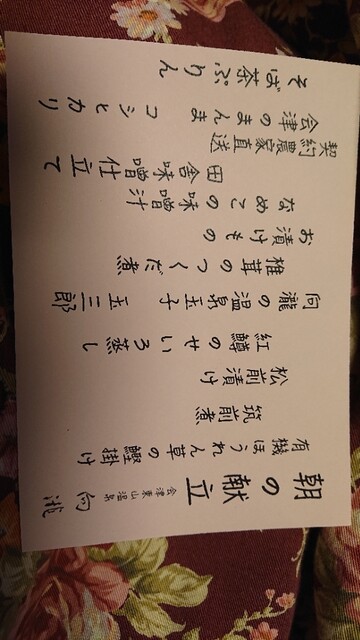 朝の献立
会津東山温泉 向瀧
有機ほうれん草の鰹掛け
筑前煮
松前漬け
紅鱒のせいろ蒸し
向瀧の温泉玉子 玉三郎
椎茸のつくだ煮
お漬けもの
なめこの味噌汁
田舎味噌仕立て
契約農家直送
会津のまんま コシヒカリ
そば茶ぷりん